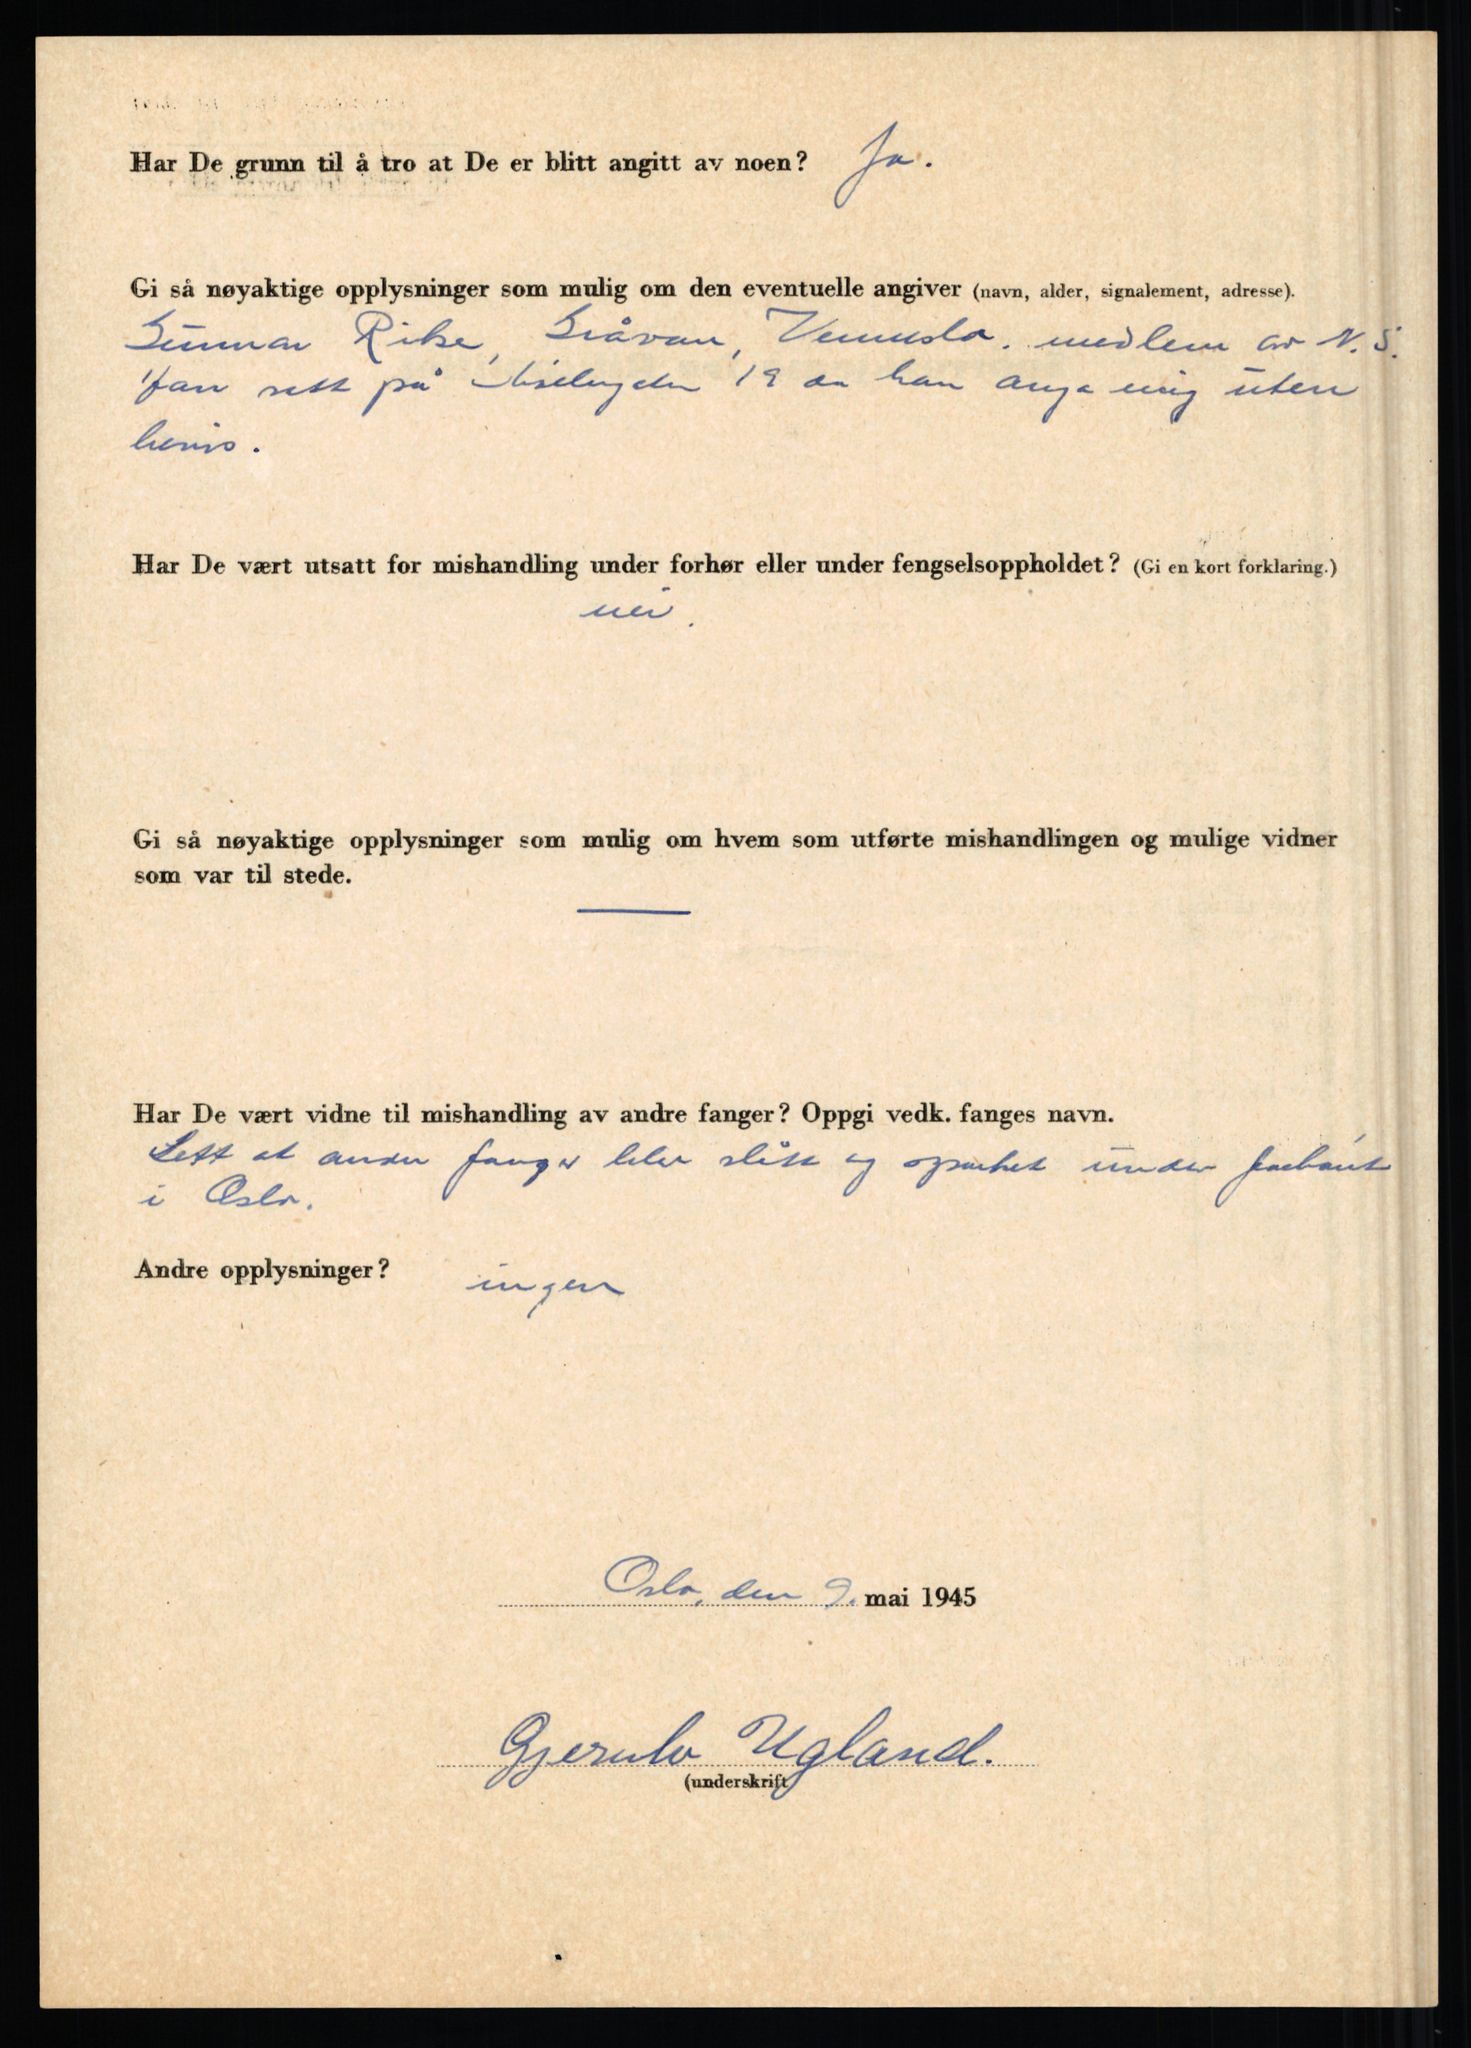 Har De grunn til å tro at De er blitt angitt av noen? Ja.
Gi så nøyaktige opplysninger som mulig om den eventuelle angiver (navn, alder, signalement, adresse).
Gunnar Rike, Gråvan, Vennesla. medlem av N.S.
sett på 19 da han anga mig uten
bevis.
Har De vært utsatt for mishandling under forhør eller under fengselsoppholdet? (Gi en kort forklaring.)
nei.
Gi så nøyaktige opplysninger som mulig om hvem som utførte mishandlingen og mulige vidner
som var til stede.
Har De vært vidne til mishandling av andre fanger? Oppgi vedk. fanges navn.
Sett at andre fanger blev slått og sparket under
i Oslo.
Andre opplysninger? ingen
Oslo, den 9. mai 1945
Gjerulv Ugland.
(underskrift)